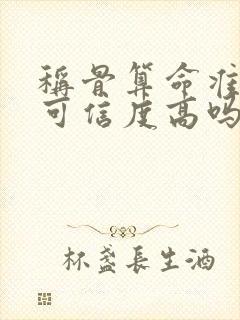 稱骨算命准
可信度高吗
杯盏長生酒